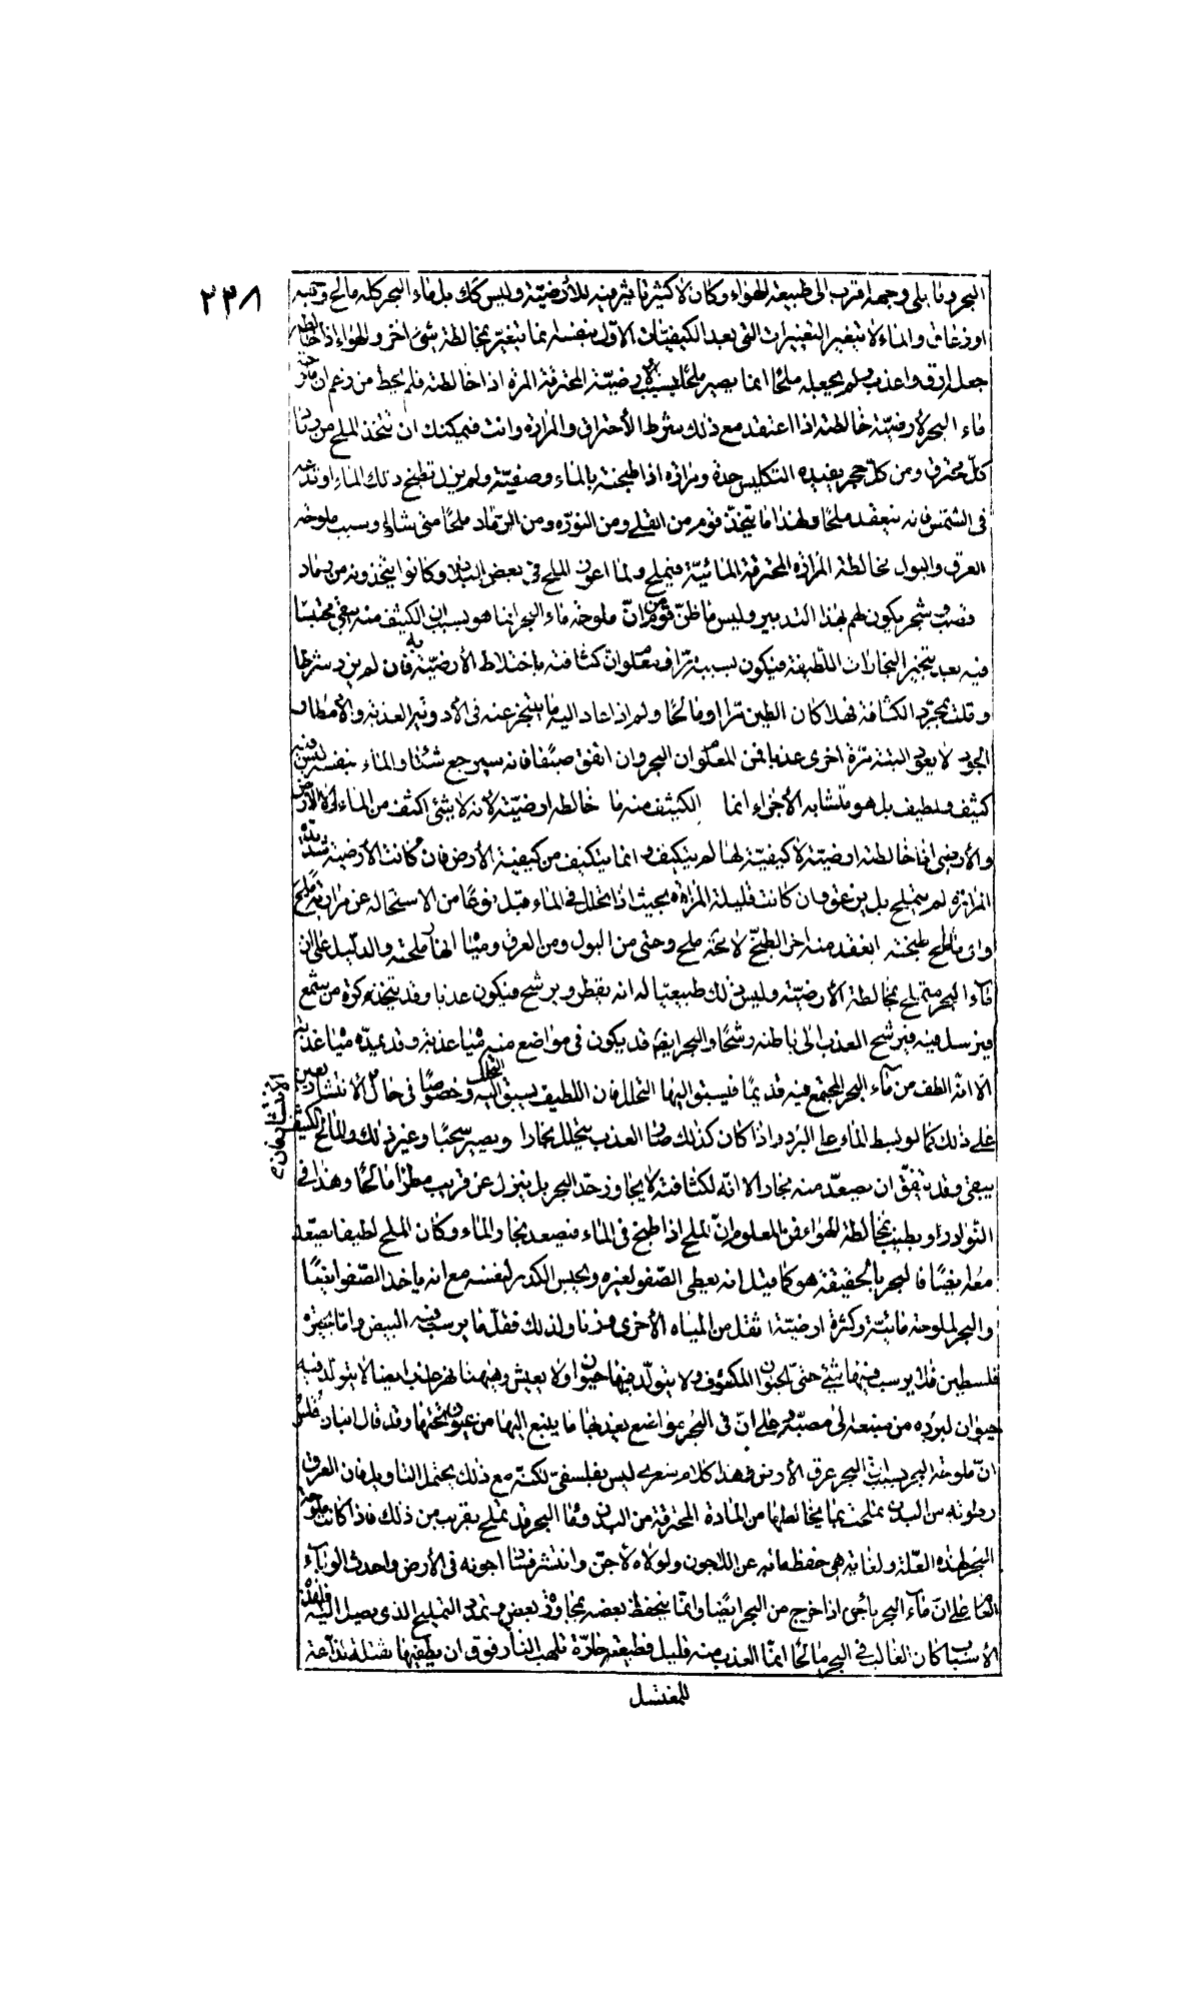 ٢٣٨
البحر وما يلى وجهه اقرب الى طبيعة الهواء وكان لا كثير تاثير فيه للأرضيّة وليس كك بل ماء البحر كله مالح
او زعاق والماء لا يتغير التغييرات التى بعد الكيفيّات الاول بنفسه انما تتغيّر بمخالطة شئ اخر والهواء اذا خالطه
جعله ارق واعذب ولم يجعله ملحًا انما يصير ملحًا بسبب الارضيّة المحترقة المرة اذا خالطته فلم يخط من زعم ان ملوحة
ماء البحر لأرضيّة خالطته اذا اعتقد مع ذلك شرط الأحتراق والمرارة وانت فيمكنك ان تتخذ الملح من رماد
كلّ محترق ومن كلّ حجر يفيده التكليس حدة ومرارة اذا طبخته بالماء وصفيّته ولم يزل تطبخ ذلك الماء او تدعه
فى الشمس فانه ينعقد ملحًا ولهذا ما يتخذ قوم من القلى ومن النورة ومن الرماد ملحًا متى شاؤا وسبب ملوحة
العرق والبول مخالطة المرارة المحترقة المائيّة فيملح ولما اعوز الملح فى بعض البلاد وكانوا يتخذونه من رماد
قصب وشجر يكون لهم بهذا التدبير وليس ما ظنّ قوم من انّ ملوحة ماء البحر انما هو بسبب ان الكثيف منه يبقى محتبسًا
فيه بعد تبخير البخارات اللطيفة فيكون بسببه مرّا فمعلوم ان كثافته باختلاط الأرضيّة به فان لم يزد شرطا
وقلت بمجرّد الكثافة فهلا كان الطين مرّا او مالحًا ولم اذا عاد اليه ما يتبخر عنه فى الأدوية العذبة والأمطار
الجود لا يعود البتة مرّة اخرى عذبا فمن المعلوم ان البحر وان اتفق صيفًا فانه سيرجع شتاء والماء بنفسه ليس فيه
كثيف ولطيف بل هو متشابه الأجزاء انما الكثيف منه ما خالطه ارضيّة لأنه لا شئ اكثف من الماء الا الأرض
والأرضى اذا خالطته ارضيّة لا كيفيّة لها لم يتكيف و انما يتكيف من كيفية الأرض فان كانت الأرضية شديدة
المرارة لم يتملح بل يزعق وان كانت قليلة المرارة بحيث اذا تحلل فى الماء قبل نوعًا من الاستحالة عن مرارته ملح
واى مالح طبخته انعقد منه اخر الطبخ لا محة ملح وحتى من البول ومن العرق ومثلها انها ملحته والدليل على ان
ماء البحر يتملح بمخالطة الأرضيّة وليس ذلك طبيعيّا له انه يقطر ويرشح فيكون عذبا وقد يتخذ كرة من شمع
فيرسل فيه فيرشح العذب الى باطنه رشحًا والبحر ايضًا قد يكون فى مواضع منه مياه عذبة وقد يمدّه مياه عذبة
الا انّه الطف من ماء البحر المجتمع فيه قديمًا فيسبق اليها التحلل فان اللطيف يسبق اليه التحلل وخصوصًا فى حال الأنتشار يعين
الأنتشار يعين
على ذلك كما لو بسط الماء على البر واذا كان كذلك صار العذب يتحلل بخارا ويصير سحبًا وغير ذلك والمالح الكثيف
يبقى وقد يتفقّ ان يصعّد منه بخار الا انّه لكثافته لا يجاوز حدّ البحر بل ينزل عن قريب مطرًا مالحًا وهذا فى
النوادر او يطيب بمخالطة الهواء فمن المعلوم انّ الملح اذا طبخ فى الماء فيصعد بخار الماء وكان الملح لطيفا يصّعد
معه ايضًا فالبحر بالحقيقة هو كما قيل انه يعطى الصّفو لغيره ويحبس الكدر لنفسه مع انه ياخذ الصّفو ايضًا
والبحر لملوحة مائيّته وكثرة ارضيّته اثقل من المياه الأخرى وزنا ولذلك فقلّ ما يرسب فيه البيض واما بحيرة
فلسطين فلا يرسب فيها شئ حتى الحيوان المكتوف ولا يتولّد فيها حيوان ولا يعيش وفيها ماء نهر عذب ايضا لا يتولّد فيه
حيوان لبرده من منبعه الى مصبّه على انّ فى البحر مواضع بعد هذا ما ينبع اليها من عيون تحتها وقد قال انبادقلس
انّ ملوحة البحر بسبب ان البحر عرق الأرض وهذا كلام شعرى ليس بفلسفىّ لكنّه مع ذلك يحتمل التاويل فان العرق
رطوبة من البدن تملحت بما يخالطها من المادة المحترقة من البدن وماء البحر قد تملح بقريب من ذلك فاذا كانت ملوحة
البحر لهذه العلّة ولغاية هى حفظ مائه عن الأجون ولولاه لأجن وانتشر فساد اجونه فى الأرض واحدث الوباء
العام على انّ ماء البحر يأجن اذا خرج من البحر ايضًا وانّما يحفظ بعضه بمجاورة بعض ومدد التمليح الذى يصل اليه فلهذه
الأسباب كان الغالب فى البحر مالحًا انّما العذب منه قليل
للمغتسل